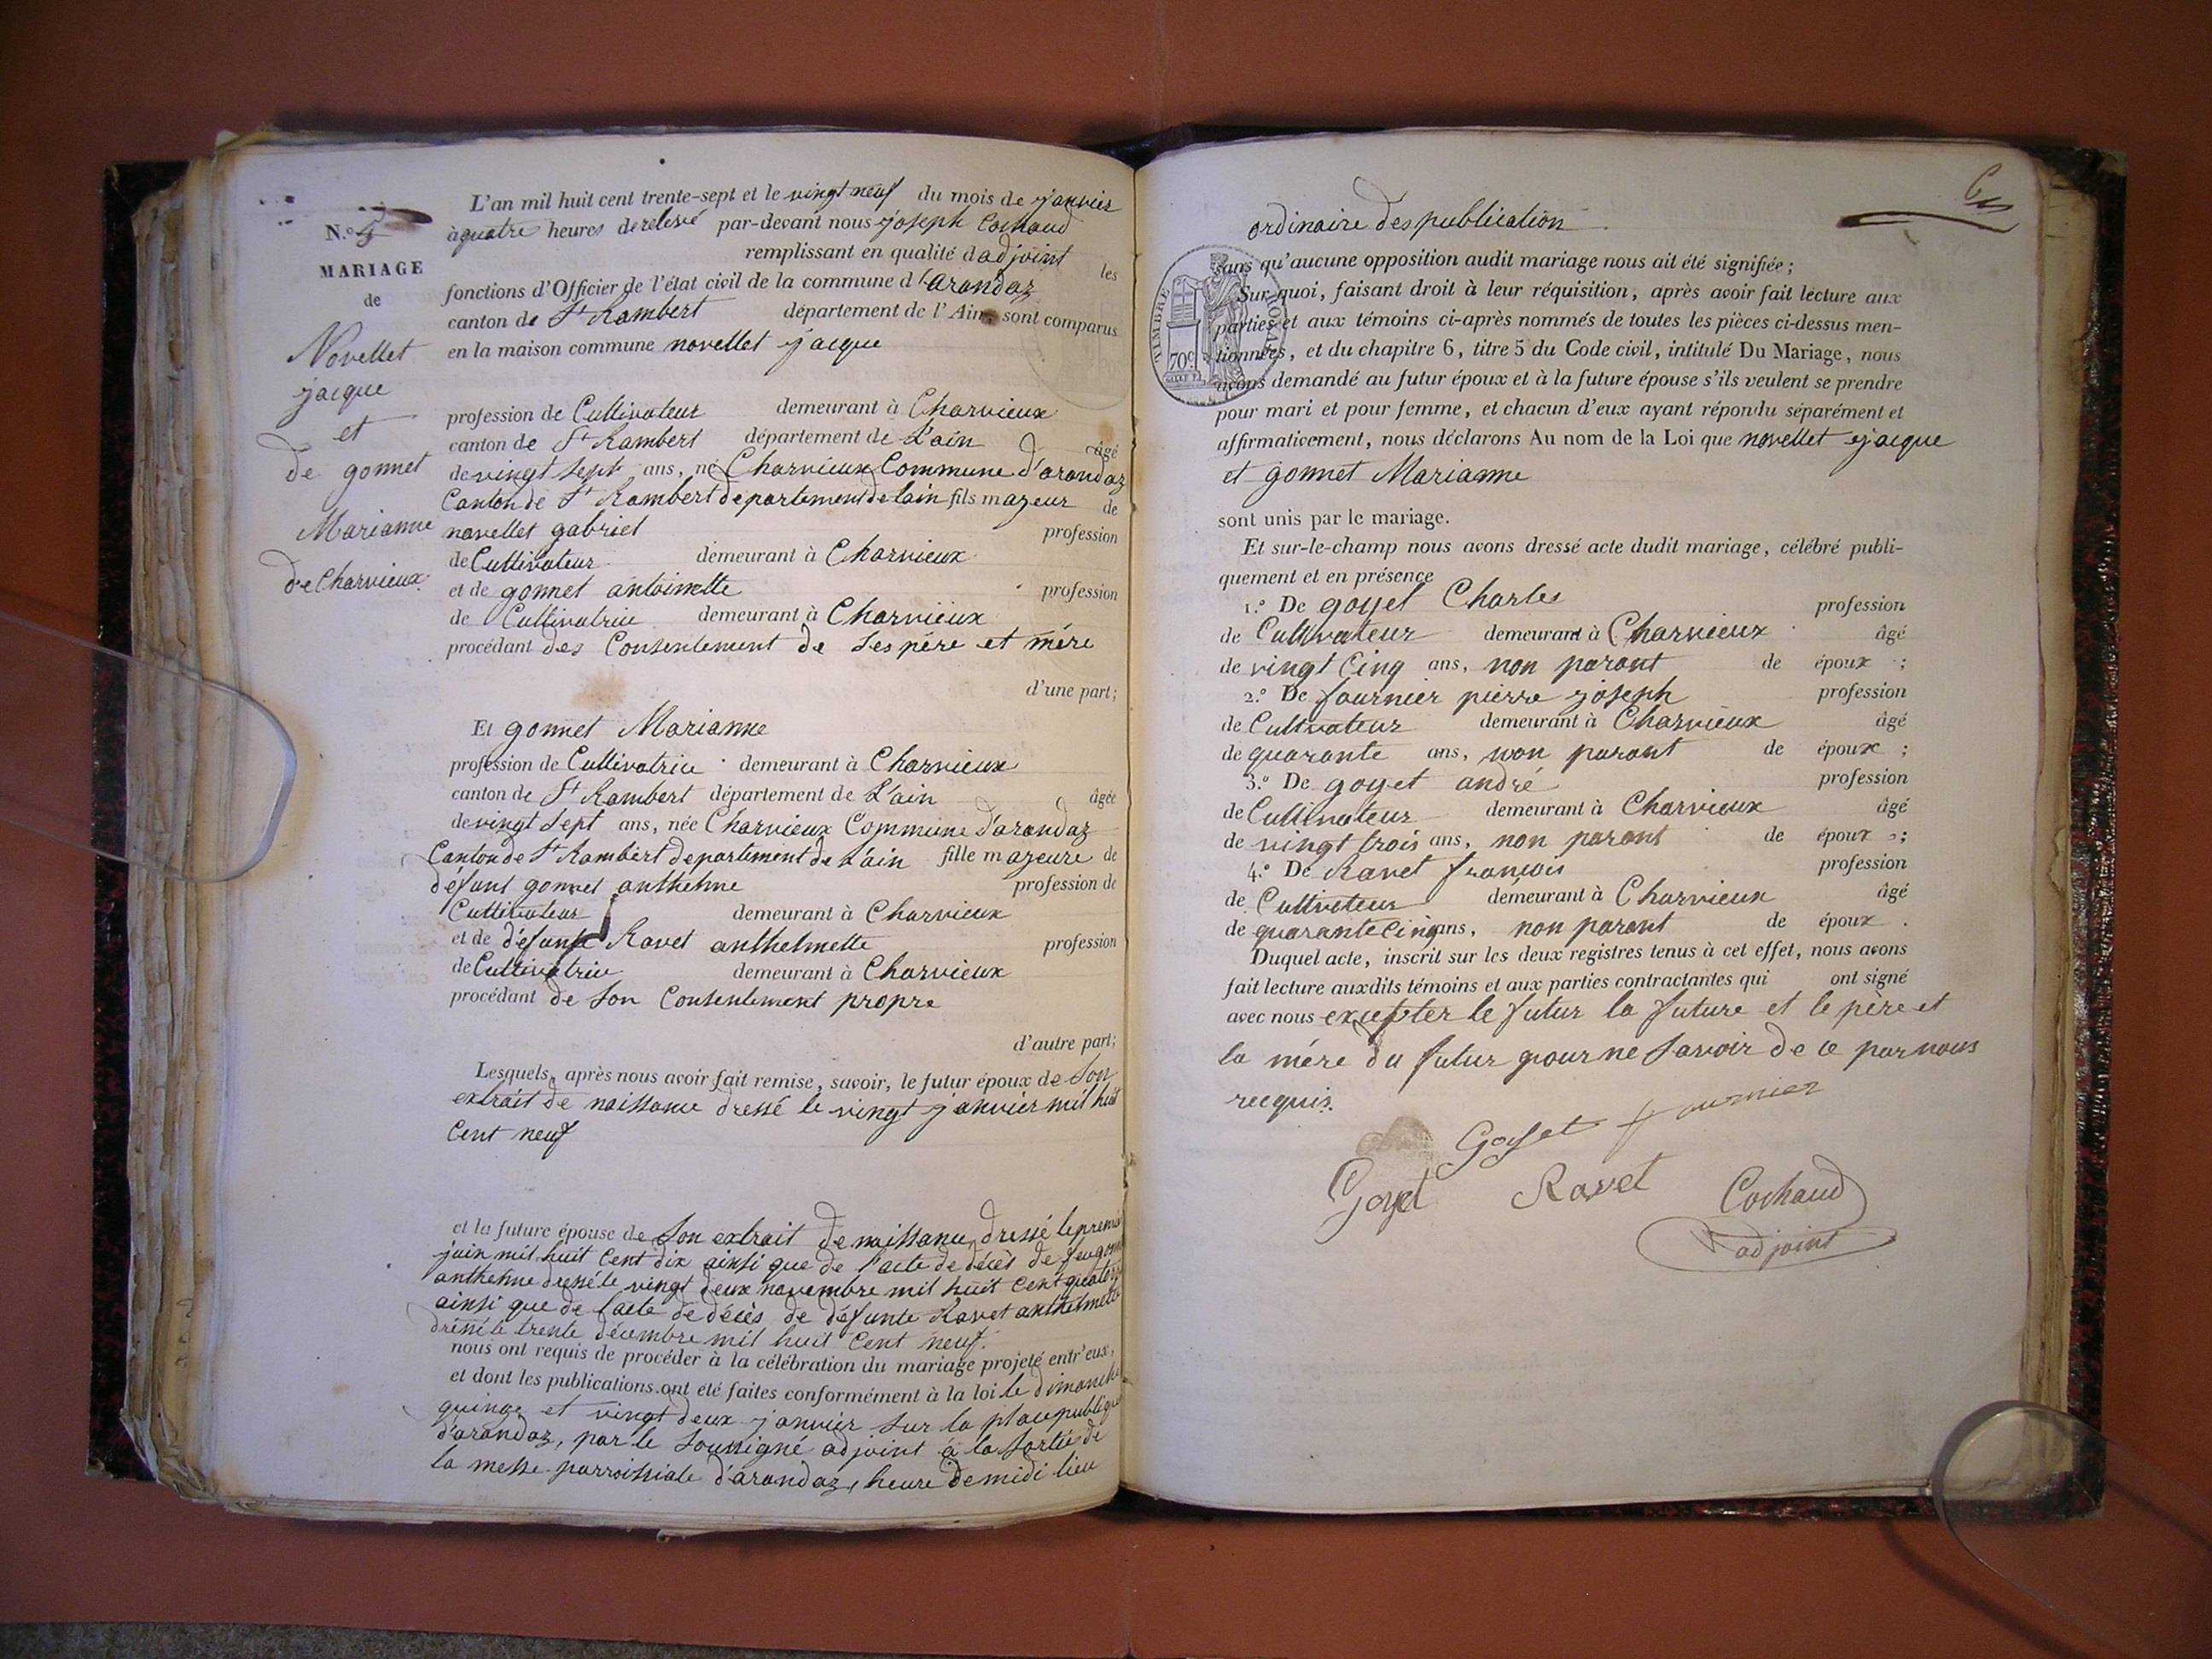 N.° 5
MARIAGE
de
Novellet
jacque
et
de gonnet
Marianne
de Charvieux
L'an mil huit cent trente-sept et le vingt neuf du mois de janvier
à quatre heures de relevé par-devant nous joseph Cochaud
remplissant en qualité d adjoint les
fonctions d'Officier de l'état civil de la commune d'arandaz
canton de St Rambert département de l'Ain sont comparus
en la maison commune novellet jacque
profession de Cultivateur demeurant à Charvieux
canton de St Rambert département de L'ain âgé
de vingt sept ans, né Charvieux Commune d'arandaz
Canton de St Rambert departement de lain fils mazeur de
novellet gabriel profession
de Cultivateur demeurant à Charvieux
et de gonnet antoinette profession
de Cultivatrice demeurant à Charvieux
procédant des Consentement de ses père et mère
d'une part;
Et gonnet Marianne
profession de Cultivatrice demeurant à Charvieux
canton de St Rambert département de L'ain âgée
de vingt sept ans, née Charvieux Commune d'arandaz
Canton de St Rambert departement de L'ain fille mazeure de
défunt gonnet anthelme profession de
Cultivateur demeurant à Charvieux
et de défunte Ravet anthelmette profession
de Cultivatrice demeurant à Charvieux
procédant de son Consentement propre
d'autre part;
Lesquels, après nous avoir fait remise, savoir, le futur époux de son
extrait de naissance dressé le vingt janvier mil huit
Cent neuf
et la future épouse de son extrait de naissance dressé le premier
juin mil huit Cent dix ainsi que de l'acte de décès de feu gonnet
anthelme dressé le vingt deux novembre mil huit Cent quatorze
ainsi que de l'acte de décès de défunte Ravet anthelmette
dressé le trente décembre mil huit Cent neuf.
nous ont requis de procéder à la célébration du mariage projeté entr'eux,
et dont les publications ont été faites conformément à la loi le dimanche
quinze et vingt deux janvier sur la place publique
d'arandaz, par le soussigné adjoint à la sortie de
la messe parroissiale d'arandaz, heure de midi lieu
ordinaire des publication
sans qu'aucune opposition audit mariage nous ait été signifiée;
Sur quoi, faisant droit à leur réquisition, après avoir fait lecture aux
parties et aux témoins ci-après nommés de toutes les pièces ci-dessus men-
tionnées, et du chapitre 6, titre 5 du Code civil, intitulé Du Mariage, nous
avons demandé au futur époux et à la future épouse s'ils veulent se prendre
pour mari et pour femme, et chacun d'eux ayant répondu séparément et
affirmativement, nous déclarons Au nom de la Loi que novellet jacque
et gonnet Marianne
sont unis par le mariage.
Et sur-le-champ nous avons dressé acte dudit mariage, célébré publi-
quement et en présence
1.° De goyet Charles profession
de Cultivateur demeurant à Charvieux âgé
de vingt Cinq ans, non parant de époux ;
2.° De fournier pierre joseph profession
de Cultivateur demeurant à Charvieux âgé
de quarante ans, non parant de époux ;
3.° De goyet andré profession
de Cultivateur demeurant à Charvieux âgé
de vingt trois ans, non parant de époux ;
4.° De Ravet francois profession
de Cultivateur demeurant à Charvieux âgé
de quarante Cinq ans, non parant de époux .
Duquel acte, inscrit sur les deux registres tenus à cet effet, nous avons
fait lecture auxdits témoins et aux parties contractantes qui ont signé
avec nous excepter le futur la future et le père et
la mère du futur pour ne savoir de ce par nous
recquis.
Goyet fournier
Goyet Ravet Cochaud
adjoint
TIMBRE ROYAL
70c